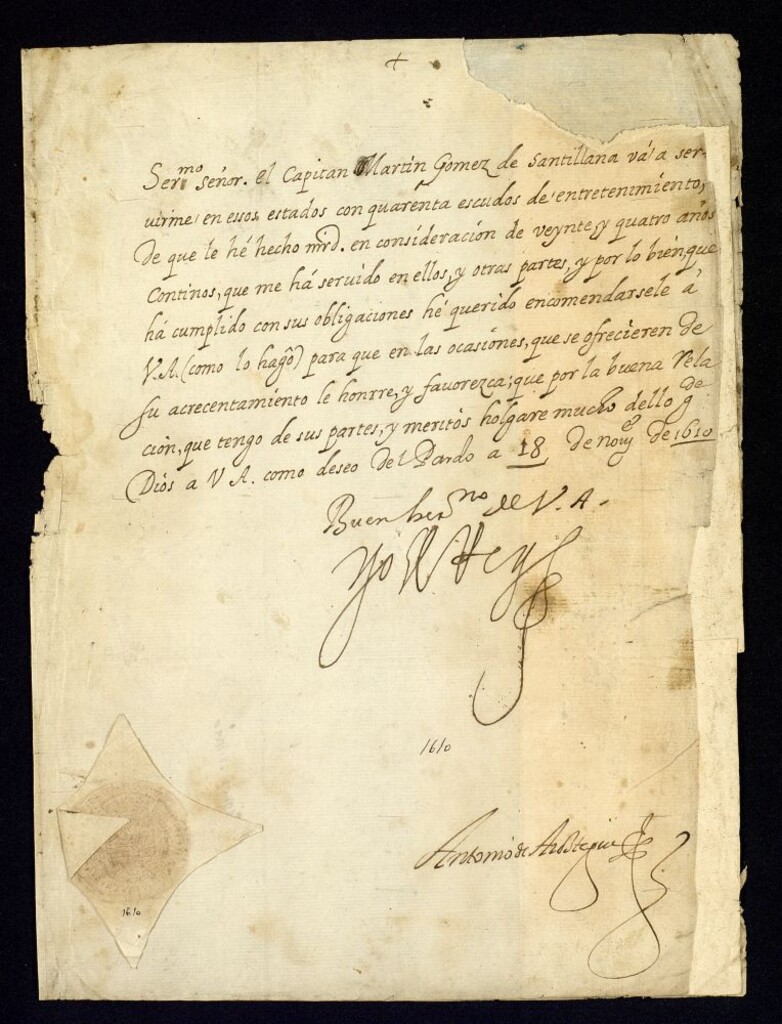 +
Sermo Señor. el Capitan Martin Gomez de Santillana vá a ser-
uirme en essos estados con quarenta escudos de entretenimiento,
de que le hé hecho mrd. en consideración de veynte, y quatro años
continos, que me há seruido en ellos, y otras partes, y por lo bien, que
há cumplido con sus obligaciones hé querido encomendarsele á
V.A. (como lo hago) para que en las ocasiones, que se ofrecieren de
su acrecentamiento le honrre, y fauorezca; que por la buena rela
ción, que tengo de sus partes, y meritos holgare mucho dello gde
Dios a V A. como deseo del Pardo a 18 de nove de 1610
Buen herno de V. A.
Yo el Rey
1610
Antonio de Arostegui
1610